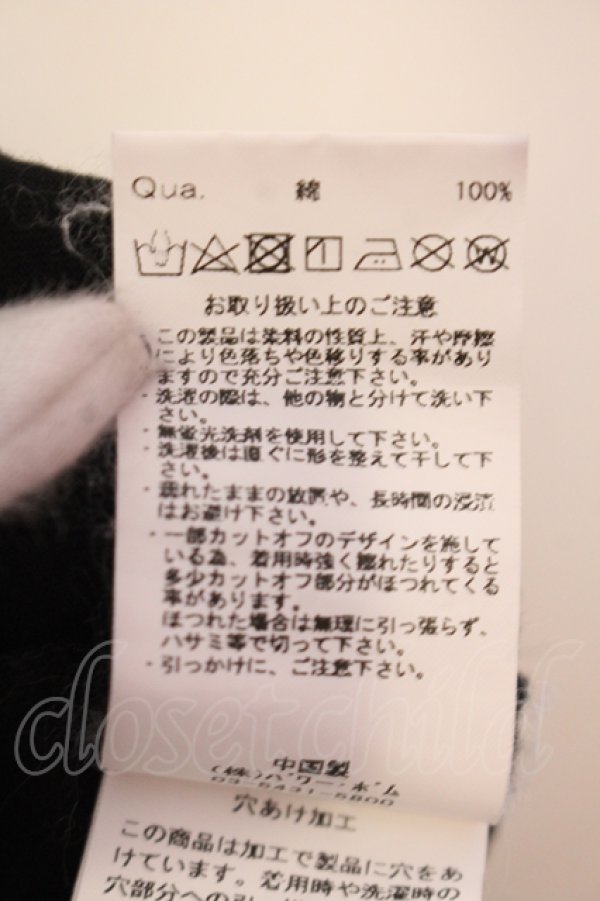 Qua. 綿 100%
お取り扱い上のご注意
・この製品は染料の性質上、汗や摩擦
により色落ちや色移りする事があり
ますので充分ご注意下さい。
・洗濯の際は、他の物と分けて洗い下
さい。
・無蛍光洗剤を使用して下さい。
・洗濯後は直ぐに形を整えて干して下
さい。
・濡れたままの放置や、長時間の浸漬
はお避け下さい。
・一部カットオフのデザインを施して
いる為、着用時強く擦れたりすると
多少カットオフ部分がほつれてくる
事があります。
ほつれた場合は無理に引っ張らず、
ハサミ等で切って下さい。
・引っかけに、ご注意下さい。
closetchild
中国製
(株)パワー・ボム
03-5431-5800
穴あけ加工
この商品は加工で製品に穴をあ
けています。着用時や洗濯時の
穴部分への引